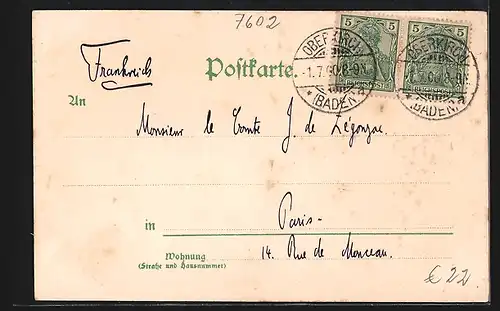 7602
5 5
OBERKIRCH
-1.7.00.8-9N.
* (BADEN)
OBERKIRCH
* (BADEN)
Frankreich
Postkarte.
An
Monsieur le Comte J. de
in Paris-
Wohnung
(Straße und Hausnummer)
14. Rue de Monceau.
€ 22.